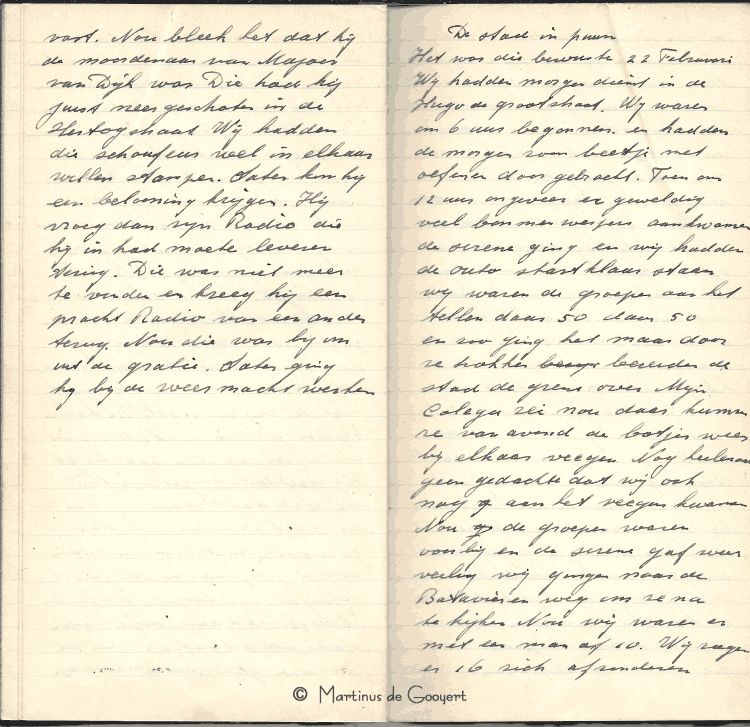 vast. Nou bleek het dat hij
de moordenaar van Majoor
van Dijk was Die had hij
juist neer geschoten in de
Hertogstraat Wij hadden
die schoufeur wel in elkaar
willen stampen. Later kon hij
een belooning krijgen. Hij
vroeg dan zijn Radio die
hij in had moete leveren
terug. Die was niet meer
te vinden en kreeg hij een
pracht Radio van een ander
terug. Nou die was bij om
uit de gratie. Later ging
hij bij de weermacht werken
De stad in puin
Het was die bewuste 22 Februari
Wij hadden morgen dienst in de
Hugo de grootstraat. Wij waren
om 6 uur begonnen. en hadden
de morgen zoon beetje met
oefenen door gebracht. Toen om
12 uur ongeveer er geweldig
veel bommenwerpers aankwamen
de sirene ging en wij hadden
de auto startklaar staan
wij waren de groepen aan het
tellen daar 50 daar 50
en zoo ging het maar door
ze trokke beneden de
stad de grens over Mijn
Colega zei nou daar kunne
ze vanavond de botjes weer
bij elkaar veegen. Nog heelemaal
geen gedachte dat wij ook
nog aan het veegen kwamen
Nou de groepen waren
voorbij en de sirene gaf weer
veilig wij gingen naar de
Batavieren weg om ze na
te kijken Nou wij waren er
met een man of 10. Wij zagen
er 16 zich afzonderen
© Martinus de Gooyert